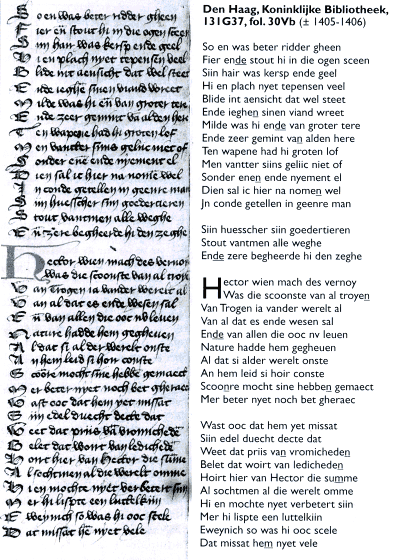 So en was beter ridder gheen
Fier en stout hi in die ogen steen
Siin hair was kersp ende geel
Hi en plach nyet tepensen veel
Blide int aensicht dat wel steet
Ende ieghe sinen viand wreet
Milde was hi en van groter tere
Ende zeer gemint va alden here
Ten wapene had hi groten lof
Men vantter siins geliic niet of
Sonder ene ende nyement el
Dien sal ic hier na nome wel
Jn conde getellen in geenre man
Siin huesscher siin goedertieren
Stout vantmen alle weghe
En zere begheerde hi den zeghe
Hector wien mach des vernoy
Was die scoonste van al troye
Van Trogen ia vander werelt al
Van al dat es ende wesen sal
En van allen die ooc nv leuen
Nature hadde hem gegheuen
Al dat si al der werelt onste
An hem leid si hoir conste
Scoone mocht sine hebbe gemaect
Mer beter nyet noch bet gheraec
Wast ooc dat hem yet missat
Siin edel duecht decte dat
Weet dat priis va vromichede
Belet dat woirt van ledichede
Hoirt hier van Hector die sume
Al sochtmen al die werelt omme
Hi en mochte nyet verbetert siin
Mer hi lispte een luttelkiin
Eweynich so was hi ooc scele
Dat missat he nyet vele
Den Haag, Koninklijke Bibliotheek,
131G37, fol. 30Vb (± 1405-1406)
So en was beter ridder gheen
Fier ende stout hi in die ogen sceen
Siin hair was kersp ende geel
Hi en plach nyet tepensen veel
Blide int aensicht dat wel steet
Ende ieghen sinen viand wreet
Milde was hi ende van groter tere
Ende zeer gemint van alden here
Ten wapene had hi groten lof
Men vantter siins geliic niet of
Sonder enen ende nyement el
Dien sal ic hier na nomen wel
Jn conde getellen in geenre man
Siin huesscher siin goedertieren
Stout vantmen alle weghe
Ende zere begheerde hi den zeghe
Hector wien mach des vernoy
Was die scoonste van al troyen
Van Trogen ia vander werelt al
Van al dat es ende wesen sal
Ende van allen die ooc nv leuen
Nature hadde hem gegheuen
Al dat si alder werelt onste
An hem leid si hoir conste
Scoonre mocht sine hebben gemaect
Mer beter nyet noch bet gheraec
Wast ooc dat hem yet missat
Siin edel duecht decte dat
Weet dat priis van vromicheden
Belet dat woirt van ledicheden
Hoirt hier van Hector die summe
Al sochtmen al die werelt omme
Hi en mochte nyet verbetert siin
Mer hi lispte een luttelkiin
Eweynich so was hi ooc scele
Dat missat hem nyet vele